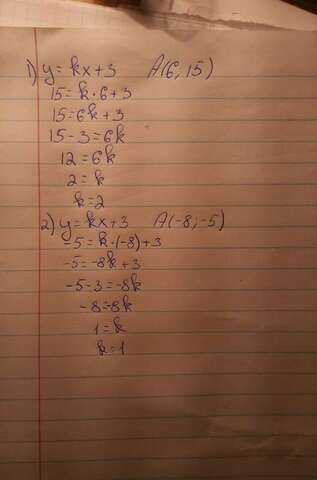 1) y=kx+3 A(6; 15)
15=k·6+3
15=6k+3
15-3=6k
12=6k
2=k
k=2
2) y=kx+3 A(-8;-5)
-5=k·(-8)+3
-5=-8k+3
-5-3=-8k
-8=-8k
1=k
k=1